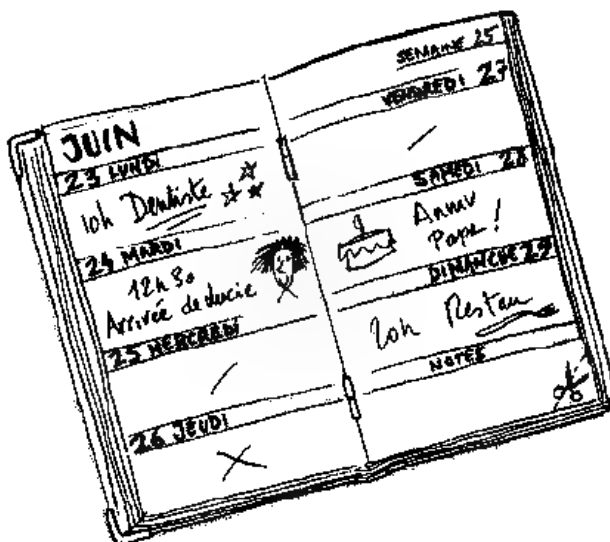 JUIN
23 LUNDI
10h Dentiste
24 MARDI
12h30
Arrivée de Lucie
25 MERCREDI
26 JEUDI
SEMAINE 25
VENDREDI 27
SAMEDI 28
Anniv
Papa !
DIMANCHE 29
20h Restau
NOTES